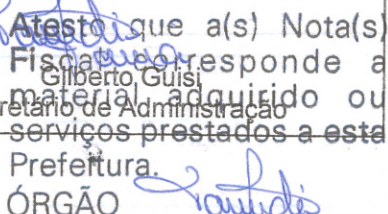 Atesto que a(s) Nota(s)
Fiscal corresponde a
Gilberto Guisi
material adquirido ou
retário de Administração
serviços prestados a esta
Prefeitura.
ÓRGÃO